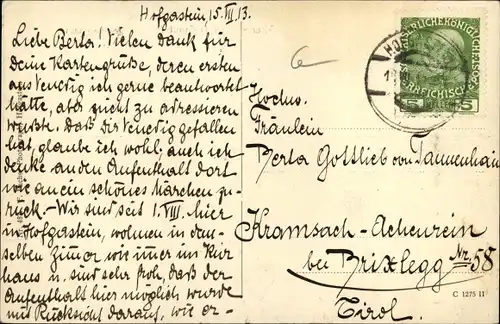 Hofgastein, 15. VII. 13.
Liebe Berta! Vielen Dank für
deine Kartengrüße, deren ersten
aus Venedig ich gerne beantwortet
hätte, aber nicht zu adressieren
wußte. Daß dir Venedig gefallen
hat, glaube ich wohl, auch ich
denke an den Aufenthalt dort
wie an ein schönes Märchen zu-
rück. – Wir sind seit 1. VIII. hier
in Hofgastein, wohnen in dem-
selben Zimmer wie immer im Kur
haus u. sind sehr froh, daß der
Aufenthalt hier möglich wurde
mit Rücksicht darauf, wie er-
Hochw.
Fräulein
Berta Gottlieb von Tannenhain
Kramsach-Achenrein
bei Brixlegg Nr. 58
Tirol.
C 1275 11
5 5